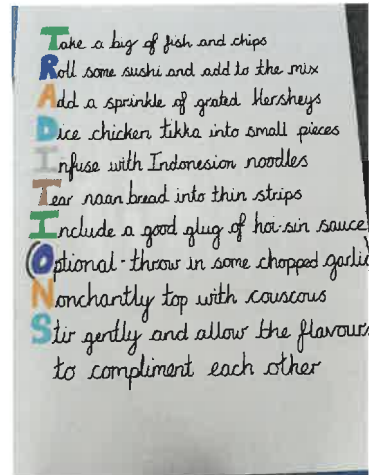 Take a big of fish and chips
Roll some sushi and add to the mix
Add a sprinkle of grated Hersheys
Dice chicken tikka into small pieces
Infuse with Indonesion noodles
Tear naan bread into thin strips
Include a good glug of hoi-sin sauce
(Optional - throw in some chopped garlic
Nonchantly top with couscous
Stir gently and allow the flavours
to compliment each other